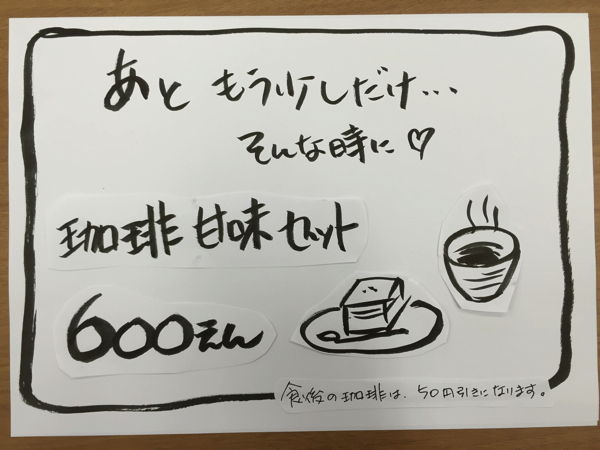 あと もう少しだけ…
そんな時に♡
珈琲 甘味 セット
600えん
食後の珈琲は、50円引きになります。